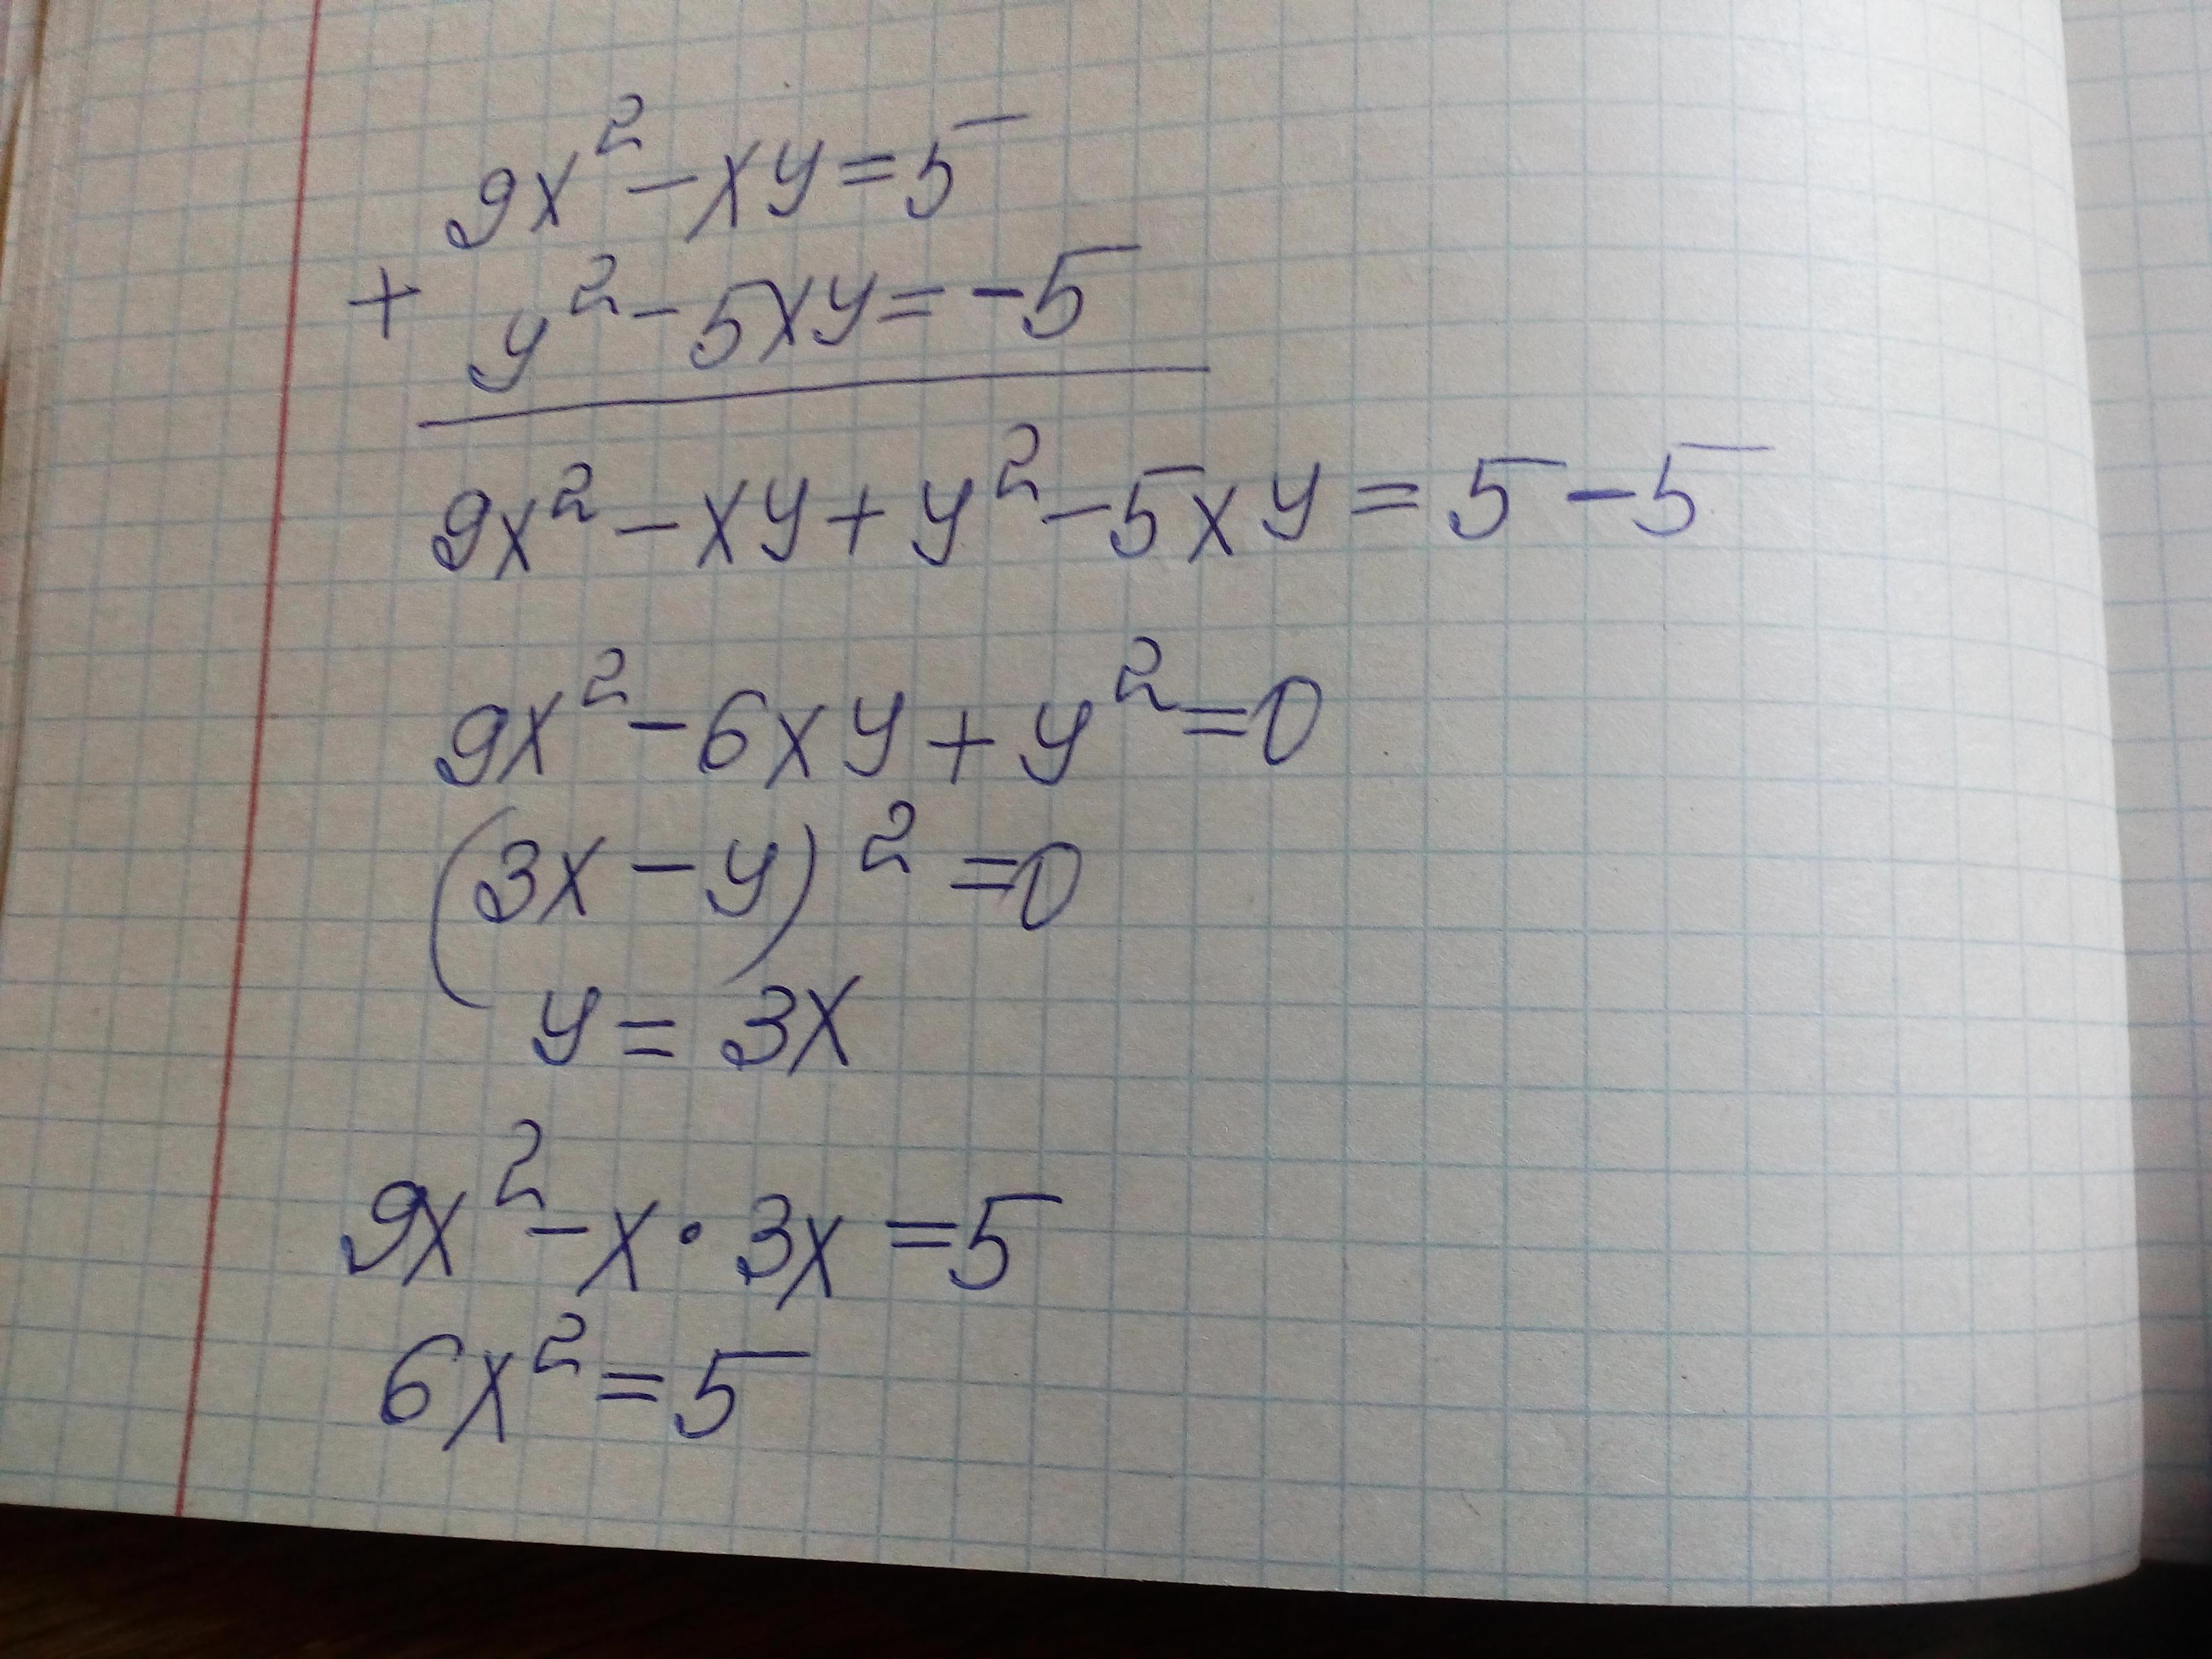 9x² - xy = 5
+ y² - 5xy = -5
9x² - xy + y² - 5xy = 5 - 5
9x² - 6xy + y² = 0
(3x - y)² = 0
y = 3x
9x² - x · 3x = 5
6x² = 5